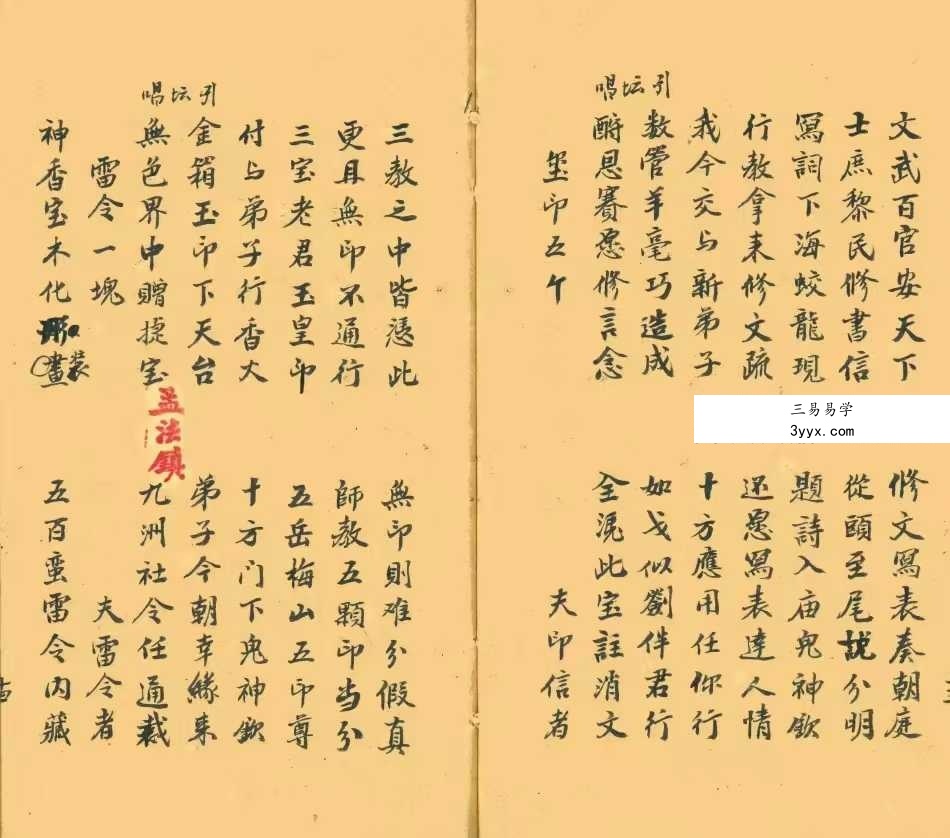 文武百官安天下 修文寫表奏朝庭
士庶黎民修書信 從頭至尾說分明
寫詞下海蛟龍現 題詩入庙鬼神欽
行教拿来修文疏 还愿寫表達人情
我今交与新弟子 十方應用任你行
引坛唱
数管羊毫巧造成 如戈似劉伴君行
酧恩賽愿修言念 全凴此宝註消文
玺印五个 夫印信者
三教之中皆憑此 無印則难分假真
更且無印不通行 師教五顆印当分
三宝老君玉皇印 五岳梅山五印尊
付与弟子行香火 十方门下鬼神欽
引坛唱
金箱玉印下天台 弟子今朝幸緣来
無色界中贈捷宝 九洲社令任通裁
雷令一塊 夫雷令者
神香宝木化彫装畫 五百蛮雷令内藏
孟法鎮
三易易学
3yyx.com